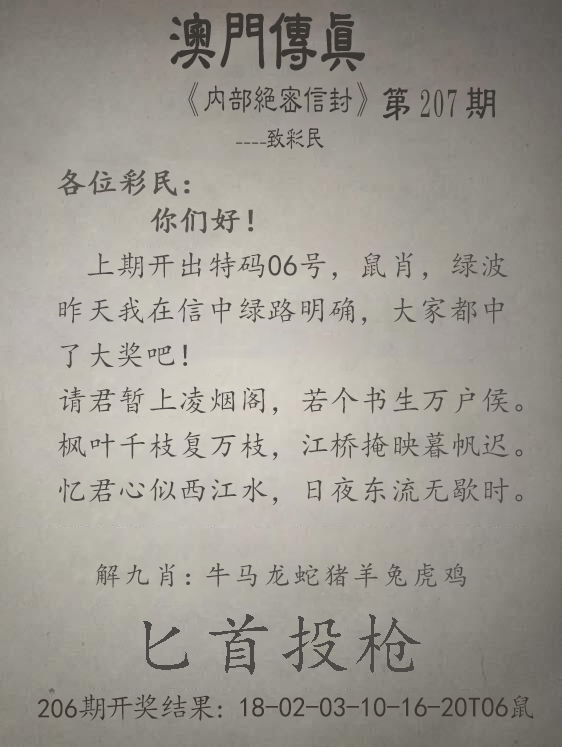 澳門傳眞
《内部絕密信封》第207期
----致彩民
各位彩民：
你们好！
上期开出特码06号，鼠肖，绿波
昨天我在信中绿路明确，大家都中
了大奖吧！
请君暂上凌烟阁，若个书生万户侯。
枫叶千枝复万枝，江桥掩映暮帆迟。
忆君心似西江水，日夜东流无歇时。
解九肖：牛马龙蛇猪羊兔虎鸡
匕首投枪
206期开奖结果：18-02-03-10-16-20T06鼠